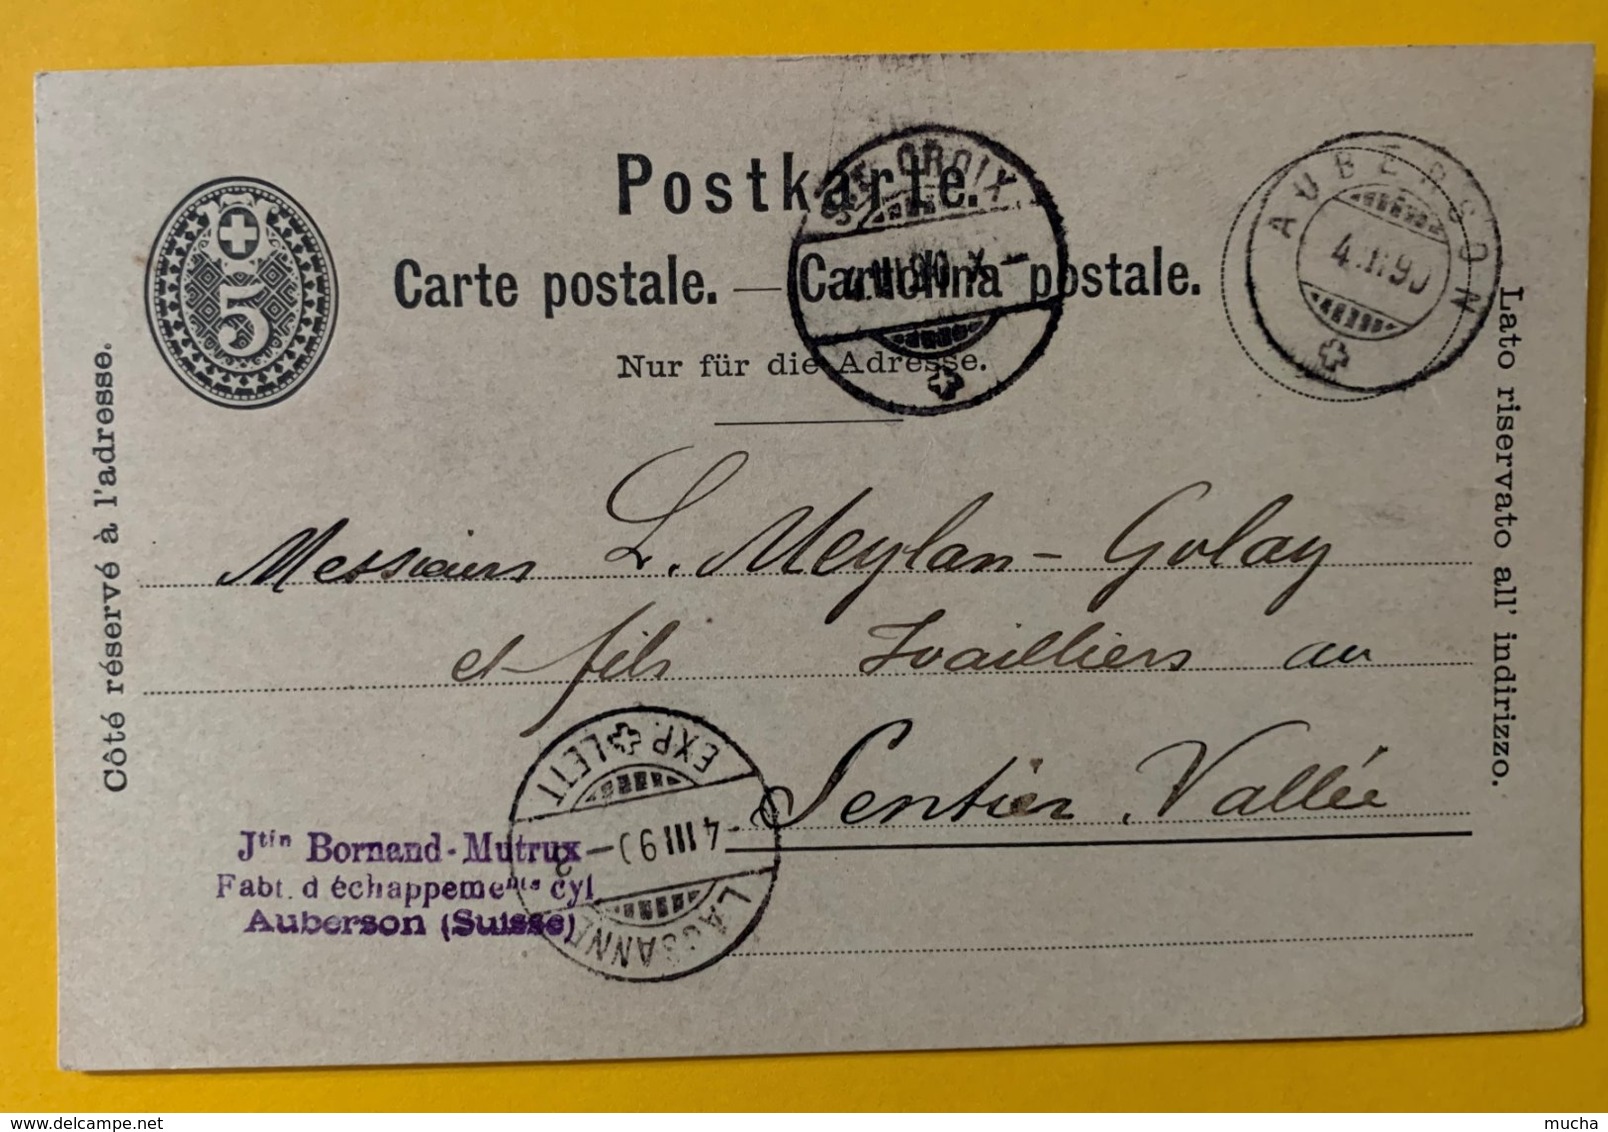 Postkarte.
Carte postale. — Cartolina postale.
Nur für die Adresse.
5
STE CROIX
4.III.90.X–
AUBERSON
4.III.90
Côté réservé à l'adresse.
Lato riservato all' indirizzo.
Messieurs L. Meylan-Golay
et fils Joailliers au
Sentier, Vallée
EXP. LETT
-4.III.90-
LAUSANNE
Jtin Bornand-Mutrux
Fabt. d échappements cyl
Auberson (Suisse)
delcampe.net
mucha